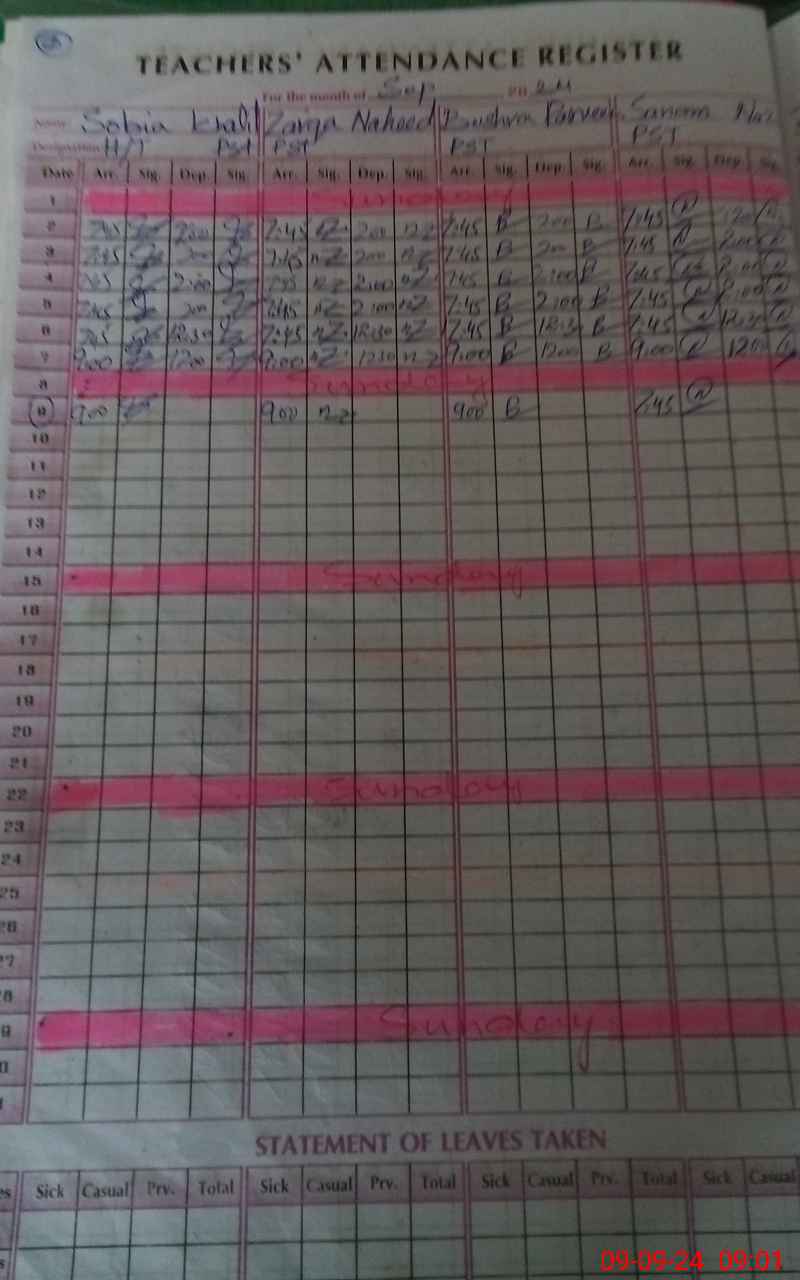 TEACHERS' ATTENDANCE REGISTER
For the month of Sep 20 24
Name Sobia Khalil Zarqa Naheed Bushra Parveen Sanam
Designation H/T PST PST PST PST
Date Arr. Sig. Dep. Sig. Arr. Sig. Dep. Sig. Arr. Sig. Dep. Sig. Arr. Sig. Dep. Sig.
1 Sunday
2 7:45 2:00 7:45 NZ 2:00 NZ 7:45 B 2:00 B 7:45 N 2:00 N
3 7:45 2:00 7:45 NZ 2:00 NZ 7:45 B 200 B 7:45 N 2:00 N
4 7:45 2:00 7:45 NZ 2:00 NZ 7:45 B 2:00 B 7:45 N 2:00 N
5 7:45 200 7:45 NZ 2:00 NZ 7:45 B 2:00 B 7:45 N 2:00 N
6 7:45 12:30 7:45 NZ 12:30 NZ 7:45 B 12:30 B 7:45 N 12:30 N
7 9:00 1200 9:00 NZ 1230 NZ 9:00 B 1200 B 9:00 N 1200
8 Sunday
9 900 900 NZ 900 B 7:45 N
10
11
12
13
14
15 Sunday
16
17
18
19
20
21
22 Sunday
23
24
25
26
27
28
9 Sunday
STATEMENT OF LEAVES TAKEN
Sick Casual Prv. Total Sick Casual Prv. Total Sick Casual Prv. Total Sick Casual
09-09-24 09:01